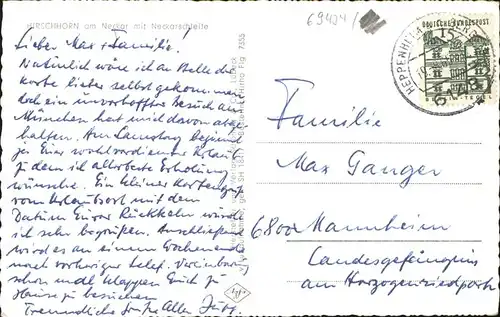 HIRSCHHORN am Neckar mit Neckarschleife
69404/
DEUTSCHE BUNDESPOST
15
HEPPENHEIM
Lieber Max + Familie!
Natürlich wäre ich an Stelle der
Karte lieber selbst gekommen,
doch ein unverhoffter Besuch aus
München hat mich davon abge-
halten. Am Samstag beginnt
ja Euer wohlverdienter Urlaub,
zu dem ich allerbeste Erholung
wünsche. Ein kleiner Kartengruß
vom Urlaubsort mit dem
Datum Eurer Rückkehr würde
ich sehr begrüßen. Anschließend
wird es an einem Wochenende
nach vorheriger telef. Vereinbarung
schon mal klappen Euch zu
Hause zu besuchen
Freundliche Grüße Allen
Familie
Max Ganger
6800 Mannheim
Landesgefängnis
am Herzogenriedpark